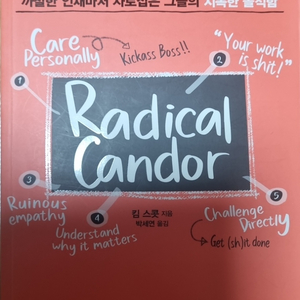 까칠한 인재마저 사로잡은 그들의 지독한 솔직함
Care
Personally
Kickass Boss!!
"Your work
is shit!"
1
2
Radical
Candor
3
4
5
Ruinous
empathy
Understand
why it matters
킴 스콧 지음
박세연 옮김
Challenge
Directly
Get (sh)it done